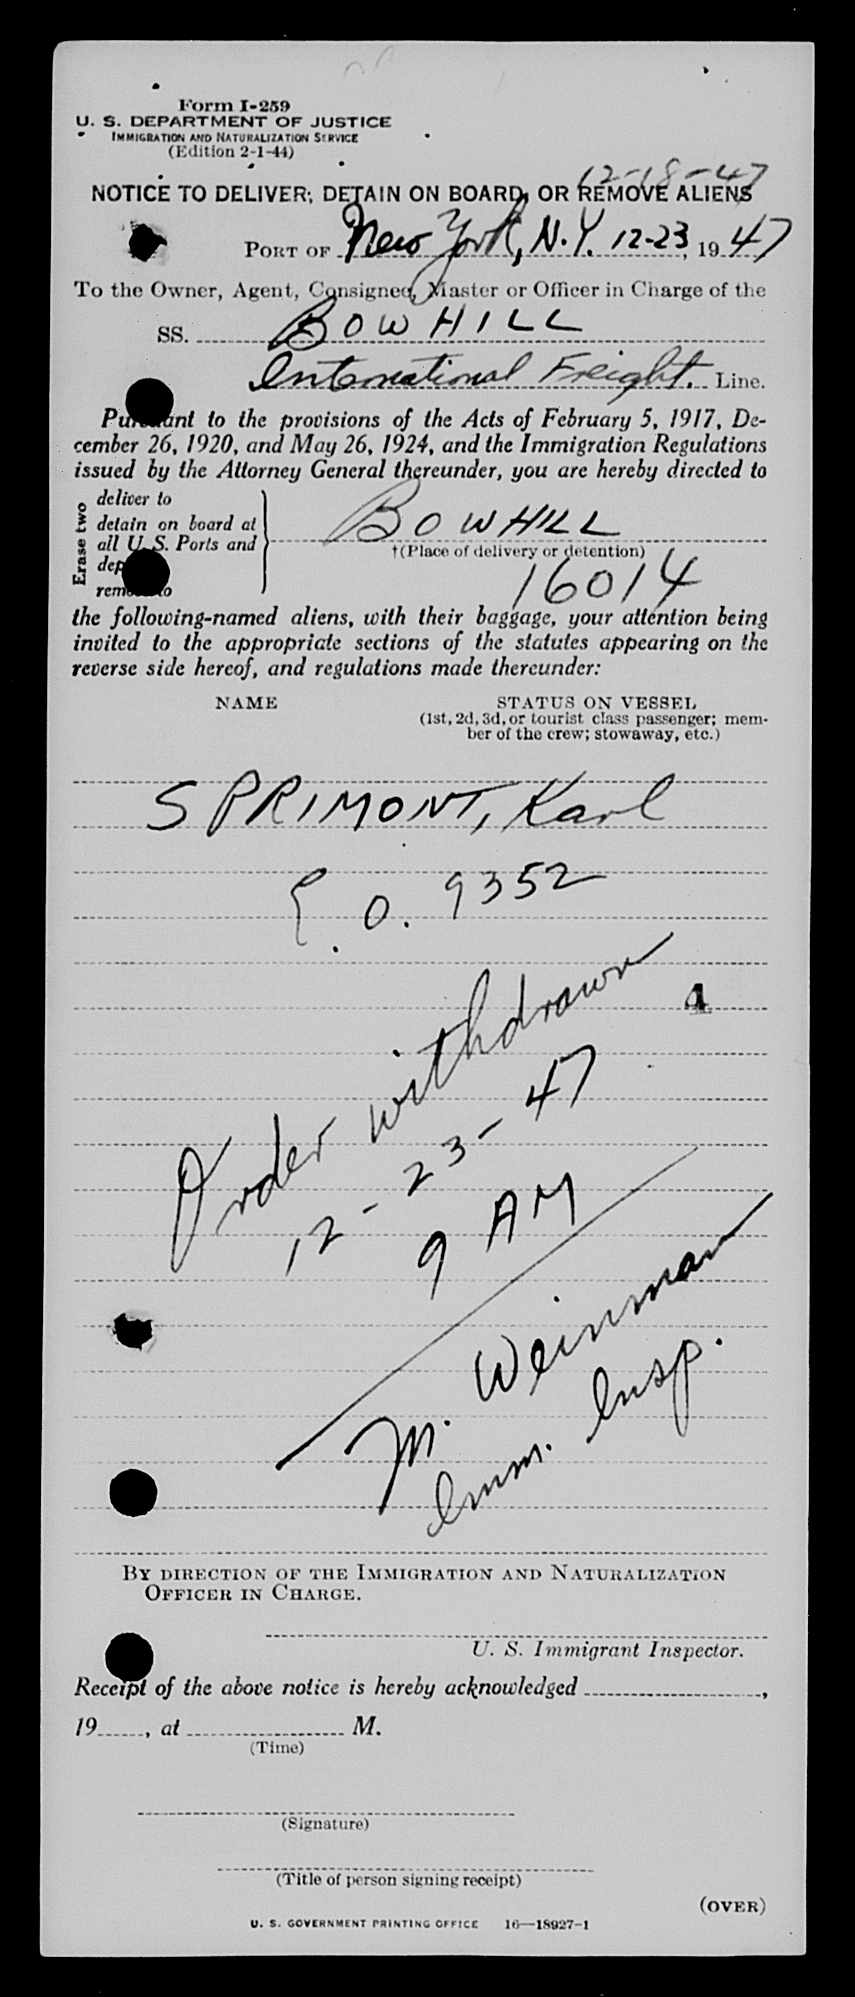 Form I-259
U. S. DEPARTMENT OF JUSTICE
IMMIGRATION AND NATURALIZATION SERVICE
(Edition 2-1-44)
12-18-47
NOTICE TO DELIVER, DETAIN ON BOARD, OR REMOVE ALIENS
PORT OF New York, N.Y. 12-23, 1947
To the Owner, Agent, Consignee, Master or Officer in Charge of the
SS. BOWHILL
International Freight. Line.
Pursuant to the provisions of the Acts of February 5, 1917, De-
cember 26, 1920, and May 26, 1924, and the Immigration Regulations
issued by the Attorney General thereunder, you are hereby directed to
Erase two
deliver to
detain on board at
all U. S. Ports and
dep
remove to
BOWHILL
†(Place of delivery or detention)
16014
the following-named aliens, with their baggage, your attention being
invited to the appropriate sections of the statutes appearing on the
reverse side hereof, and regulations made thereunder:
NAME
STATUS ON VESSEL
(1st, 2d, 3d, or tourist class passenger; mem-
ber of the crew; stowaway, etc.)
SPRIMONT, Karl
E.O. 9352
4
Order withdrawn
12-23-47
9 AM
M. Weinman
Imm. Insp.
BY DIRECTION OF THE IMMIGRATION AND NATURALIZATION
OFFICER IN CHARGE.
U. S. Immigrant Inspector.
Receipt of the above notice is hereby acknowledged ,
19 , at M.
(Time)
(Signature)
(Title of person signing receipt)
(OVER)
U. S. GOVERNMENT PRINTING OFFICE 16—18927-1